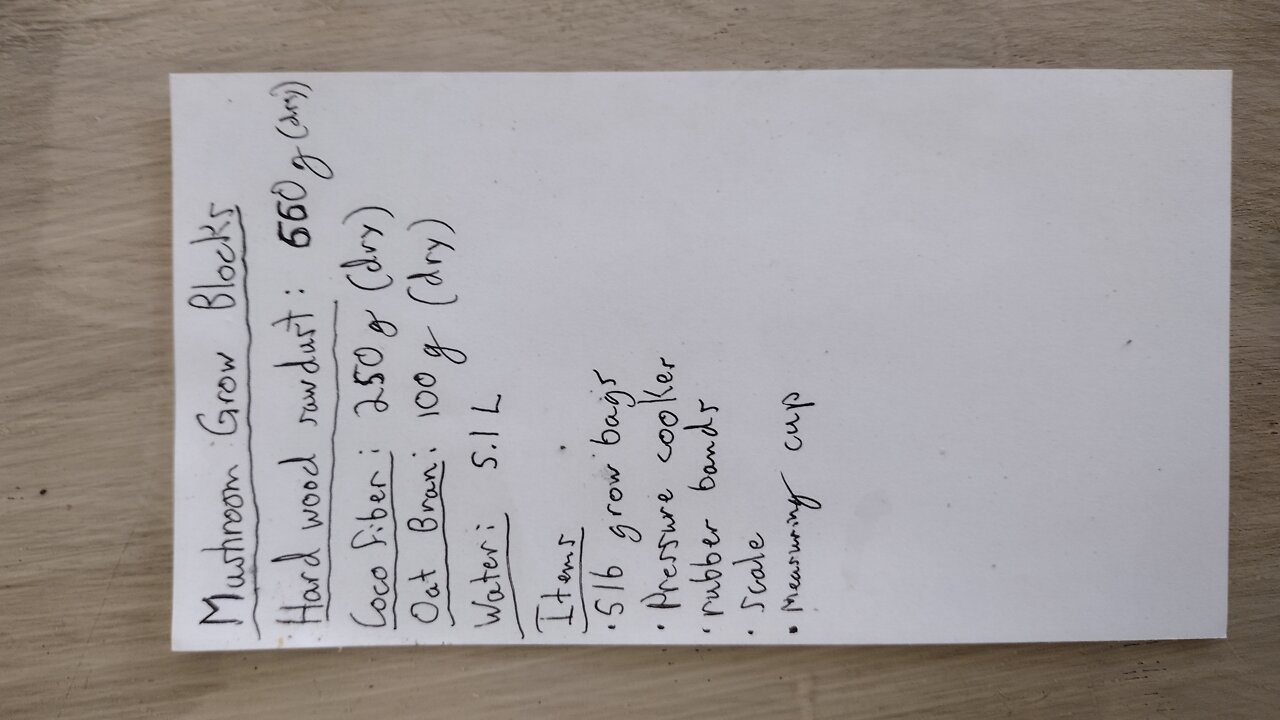 Mushroom Grow Blocks
Hard wood sawdust: 660 g (dry)
Coco fiber: 250 g (dry)
Oat Bran: 100 g (dry)
Water: 5.1 L
Items
• 5lb grow bags
• Pressure cooker
• rubber bands
• scale
• Measuring cup